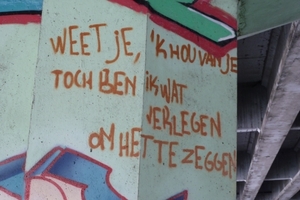 WEET JE, 'K HOU VAN JE
TOCH BEN IK WAT
VERLEGEN
OM HET TE ZEGGEN